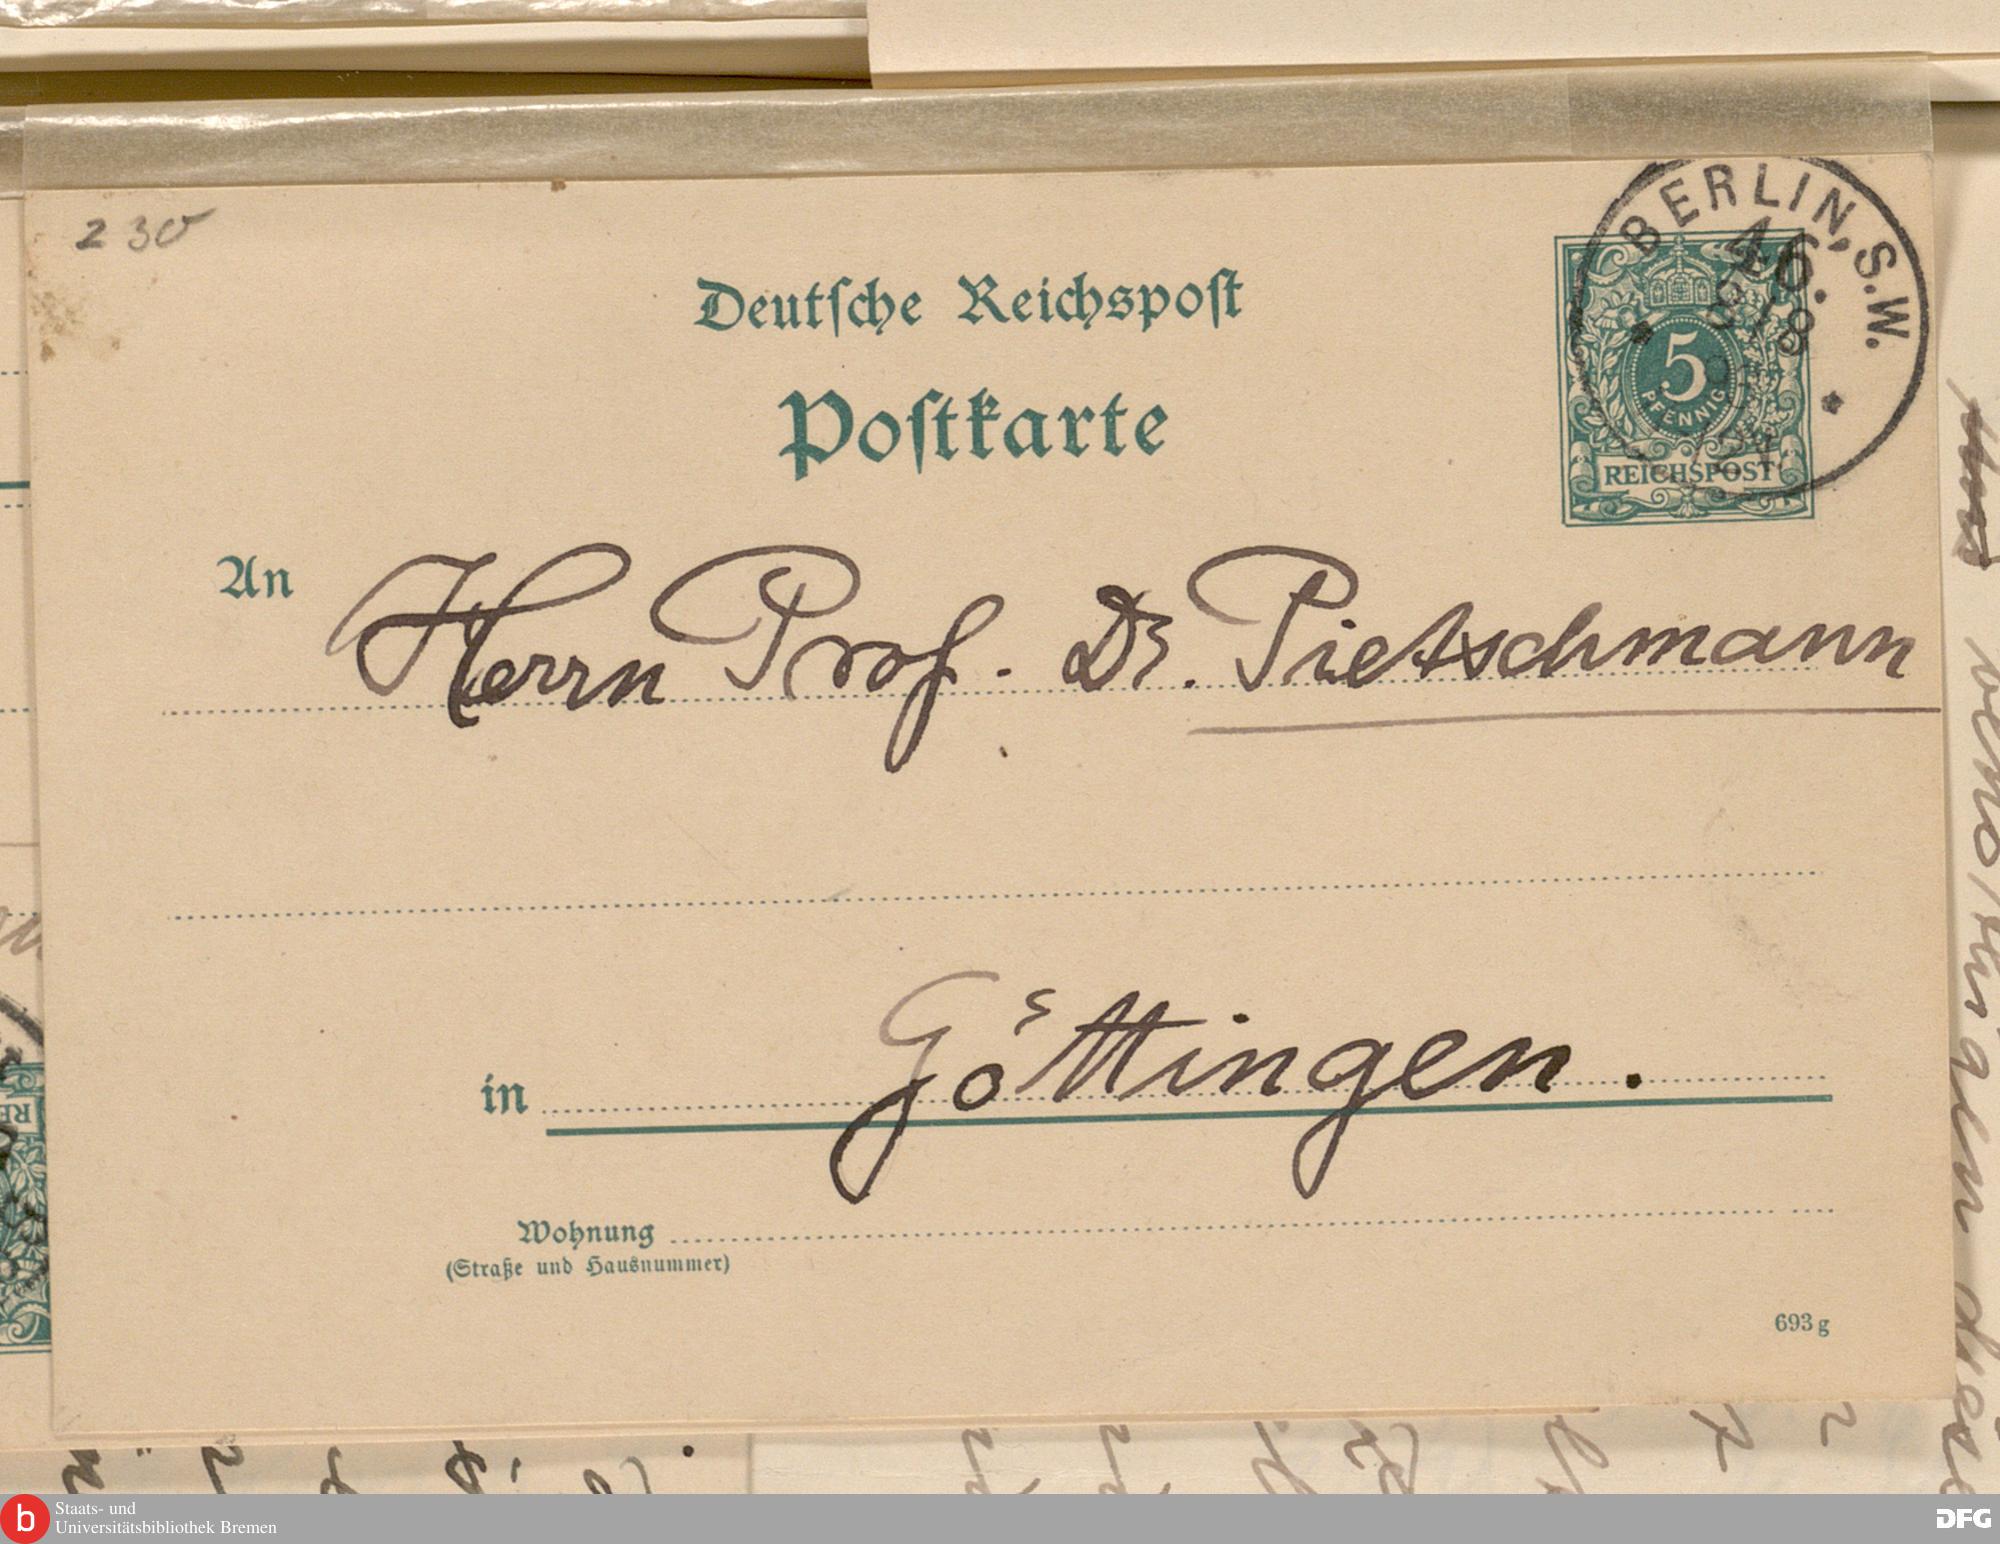 230
BERLIN, S.W.
46.
8/8
5
PFENNIG
REICHSPOST
Deutsche Reichspost
Postkarte
An Herrn Prof. Dr. Pietschmann
in Göttingen.
Wohnung
(Straße und Hausnummer)
693 g
b Staats- und
Universitätsbibliothek Bremen
DFG